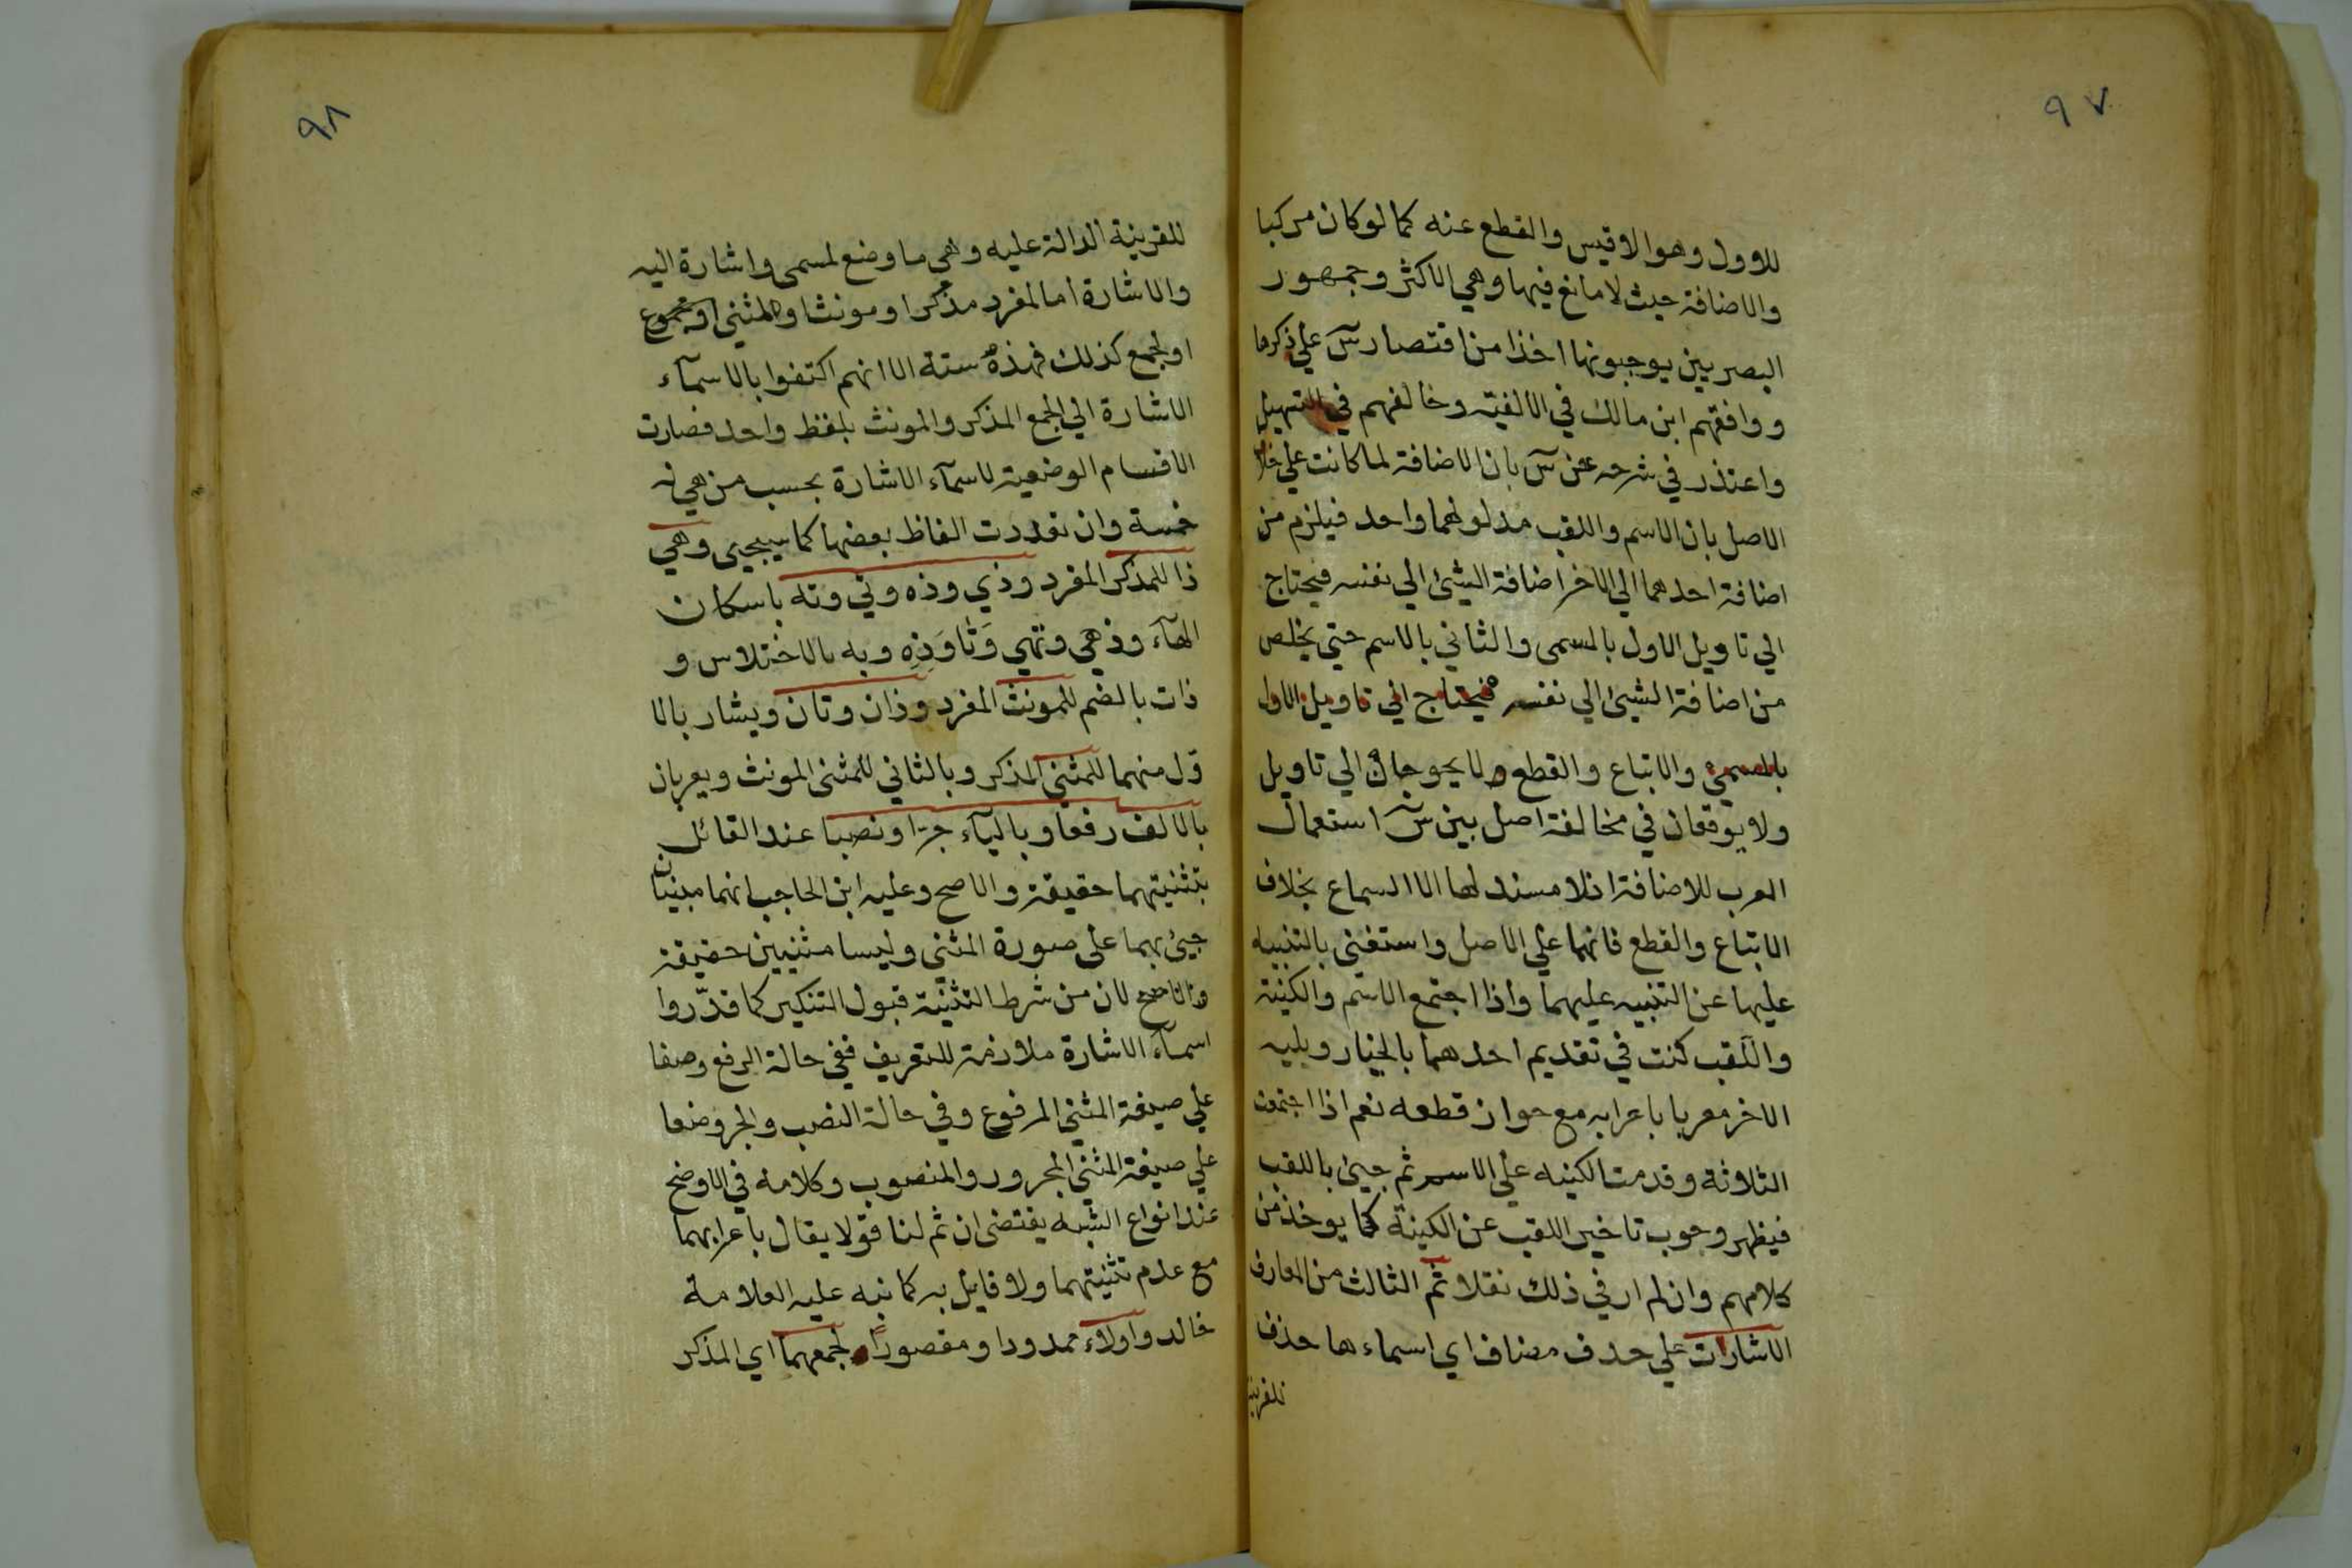 ٩٧
للاوول وهوالاقيس والقطع عنه كما لوكان مركبا
والاضافة حيث لامانع فيها وهي الاكثر وجمهور
البصريين يوجبونها اخذا من اقتصار س علي ذكرها
ووافقهم ابن مالك في الالفية وخالفهم في التسهيل
واعتذر في شرحه عن س بان الاضافة لما كانت علي خلا
الاصل بان الاسم واللقب مدلولهما واحد فيلزم من
اضافة احدهما الي الاخر اضافة الشيئ الي نفسه فيحتاج
الي تاويل الاول بالمسمى والثاني بالاسم حتي يخلص
من اضافة الشيئ الي نفسه فيحتاج الي تاويل الاول
بالمسمي والاتباع والقطع ولا يحوجان الي تاويل
ولا يوقعان في مخالفة اصل بين س استعمال
العرب للاضافة اذلا مستند لها الا السماع بخلاف
الاتباع والقطع فانهما علي الاصل واستغنى بالتنبيه
عليها عن التنبيه عليهما واذا اجتمع الاسم والكنية
واللقب كنت في تقديم احدهما بالخيار ويليه
الاخر معربا باعرابه مع جواز قطعه نعم اذا اجتمعت
الثلاثة وقدمت الكنيه علي الاسم ثم جيئ باللقب
فيظهر وجوب تاخير اللقب عن الكينة كما يوخذ من
كلامهم وان لم ار في ذلك نقلا ثم الثالث من المعارف
الاشارات علي حدف مضاف اي اسماءها حذف
للقرينة
٩٨
للقرينة الدالة عليه وهي ما وضع لمسمى واشارة اليه
والاشارة اما لمفرد مذكر او مونث او لمثنى او مجموع
اولجمع كذلك فهذه ستة الا انهم اكتفوا بالاسمآء
الاشارة الي الجمع المذكر والمونث بلفظ واحد فصارت
الاقسام الوضعية لاسمآء الاشارة بحسب من هي له
خمسة وان تعددت الفاظ بعضها كما سيجيى وهي
ذا للمذكر المفرد وذي وذه وتي وته باسكان
الهآء وذهي وتهي وَتَا وَذِهِ وبه بالاختلاس و
ذات بالضم للمونث المفرد وذان وتان ويشار بالا
ول منهما للمثنى المذكر وبالثاني للمثنى المونث ويعربان
بالالف رفعا وباليآء جرّا ونصبا عند القائل
بتثنيتهما حقيقة والاصح وعليه ابن الحاجب انهما مبنيان
جيئ بهما على صورة المثنى وليسا مثنيين حقيقة
والاصح لان من شرط التثنيّة قبول التنكير كما قدّروا
اسمآء الاشارة ملازمة للتعريف ففي حالة الرفع وضعا
علي صيغة المثني المرفوع وفي حالة النصب والجر وضعا
علي صيغة المثني المجرور والمنصوب وكلامه في الاوضح
عند انواع الشبه يقتضى ان ثم لنا قولا يقال باعرابهما
مع عدم تثنيتهما ولا قايل به كما نبه عليه العلامة
خالد واولاء ممدودا ومقصورًا لجمعهما اي المذكر